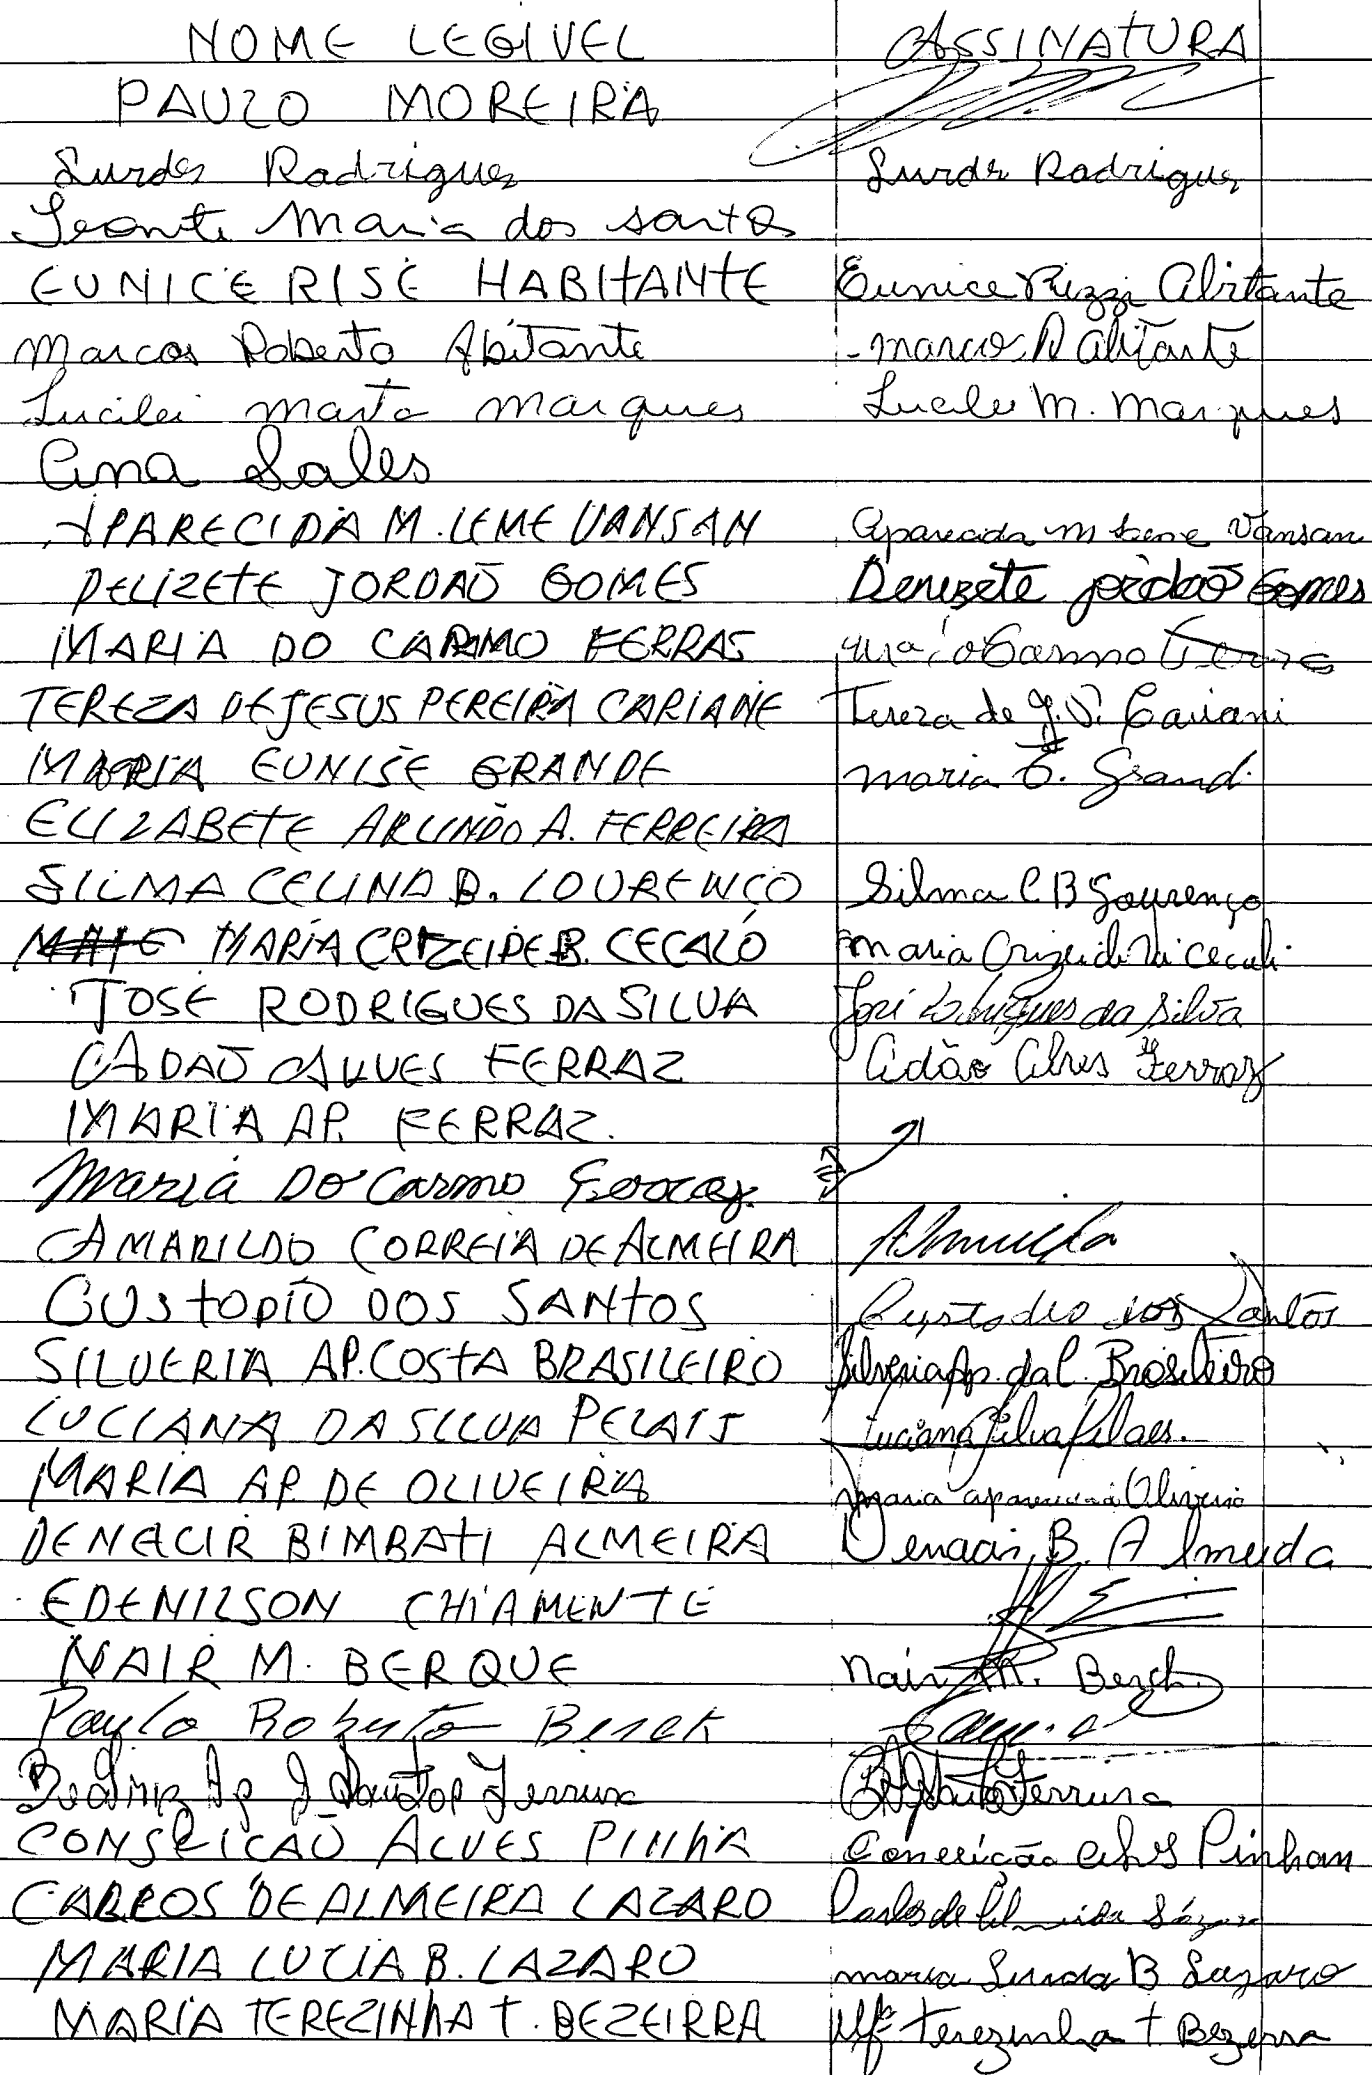 NOME LEGIVEL ASSINATURA
PAULO MOREIRA
Lurdes Rodrigues Lurdes Rodrigues
Leonite Maria dos Santos
EUNICE RISE HABITANTE Eunice Rizzi Abitante
Marcos Roberto Abitante Marcos R Abitante
Lucilei Marta Marques Lucilei M. Marques
Ana Sales
APARECIDA M. LEME VANSAN Aparecida M Leme Vansan
DELIZETE JORDAÕ GOMES Denizete Jordão Gomes
MARIA DO CARMO FERRAS
TEREZA DE JESUS PEREIRA CARIANE Tereza de J. P. Cariani
MARIA EUNISE GRANDE Maria E. Grand
ELIZABETE ARLINDO A. FERREIRA
SILMA CELINA B. LOURENÇO Silma C B Lourenço
MARIA CRIZEIDE B. CECALO Maria Crizeide
JOSE RODRIGUES DA SILVA José Rodrigues da Silva
ADAÕ ALVES FERRAZ Adão Alves Ferraz
MARIA AP. FERRAZ.
Maria Do Carmo
AMARILDO CORREIA DE ALMEIRA Almeida
CUSTODIO DOS SANTOS Custodio dos Santos
SILVERIA AP. COSTA BRASILEIRO Silveria Ap. da C. Brasileiro
LUCIANA DA SILVA PELAIS Luciana Silva Pelaes.
MARIA AP. DE OLIVEIRA Maria Aparecida Oliveira
DENACIR BIMBATI ALMEIRA Denacir B. Almeida
EDENILSON CHIAMENTE
NAIR M. BERQUE Nair M. Berch
Paulo Roberto Berck
Beatriz Ap J Santos Ferreira Ferreira
CONSEICAÕ ALVES PINHA Conceição Alves Pinham
CARLOS DE ALMEIRA LAZARO Carlos de Almeida Lázaro
MARIA LUCIA B. LAZARO Maria Lucia B Lazaro
MARIA TEREZINHA T. BEZEIRRA Mª Terezinha T. Bezerra